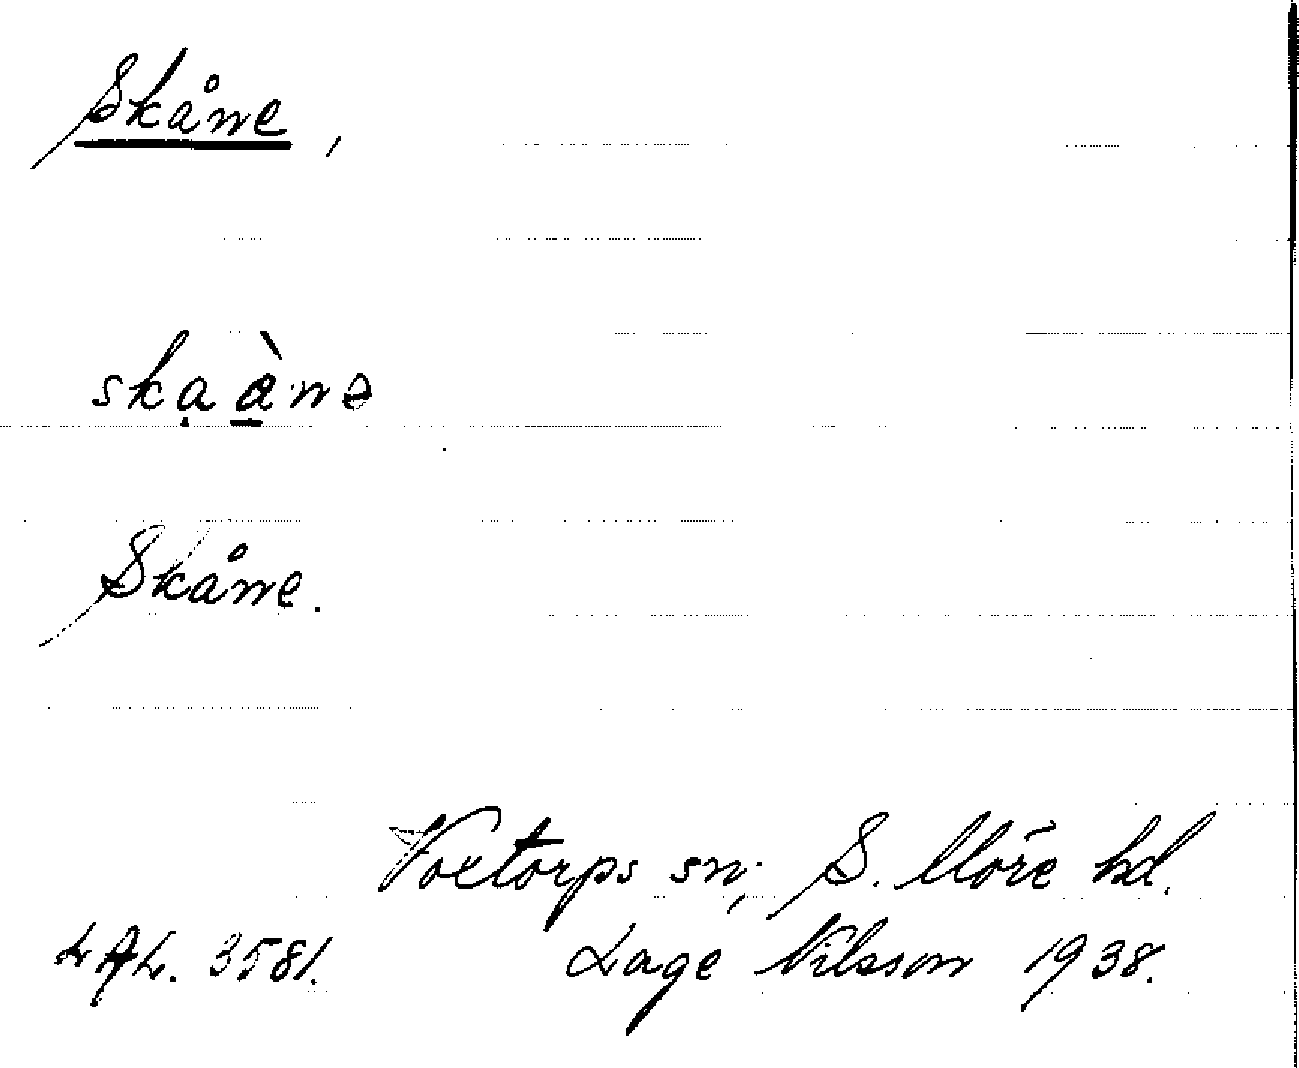 Skåne,
skạà̱nə
Skåne.
Voxtorps sn, S. Möre hd.
LAL. 3581. Lage Nilsson 1938.